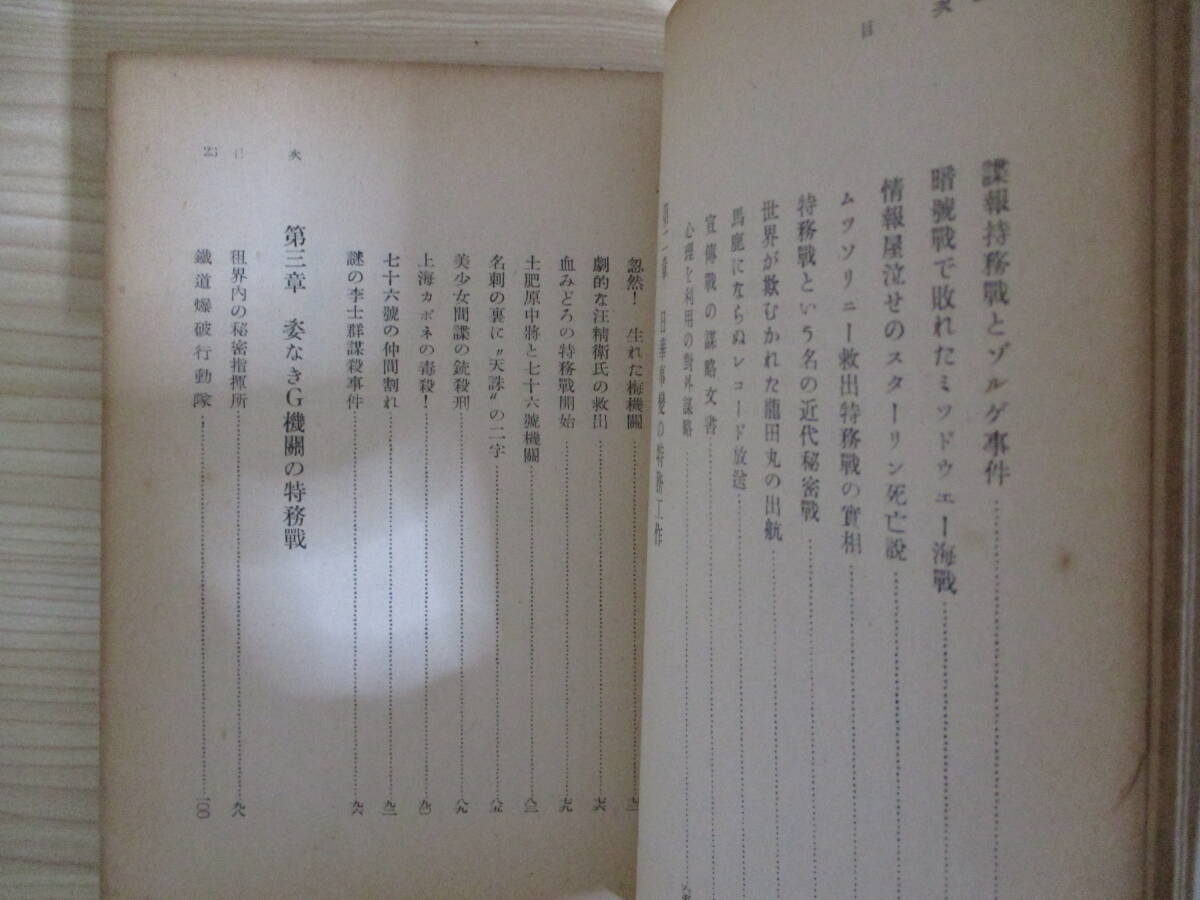 目
次
諜報持務戰とゾルゲ事件
暗號戰で敗れたミツドウエー海戰
情報屋泣せのスターリン死亡説
ムツソリニー救出特務戰の實相
特務戰という名の近代秘密戰
世界が欺むかれた龍田丸の出航
馬鹿にならぬレコード放送
宣傳戰の謀略文書
心理を利用の對外謀略
第二章 日華事變の特務工作
忽然! 生れた梅機關
劇的な汪精衛氏の救出 七六
血みどろの特務戰開始 七九
土肥原中將と七十六號機關 八二
名刺の裏に〝天誅〟の二字 八五
美少女間諜の銃殺刑 八九
上海カポネの毒殺! 九〇
七十六號の仲間割れ 九二
謎の李士群謀殺事件 九六
第三章 姿なきG機關の特務戰
租界内の秘密指揮所 九八
鐵道爆破行動隊 一〇〇
目次